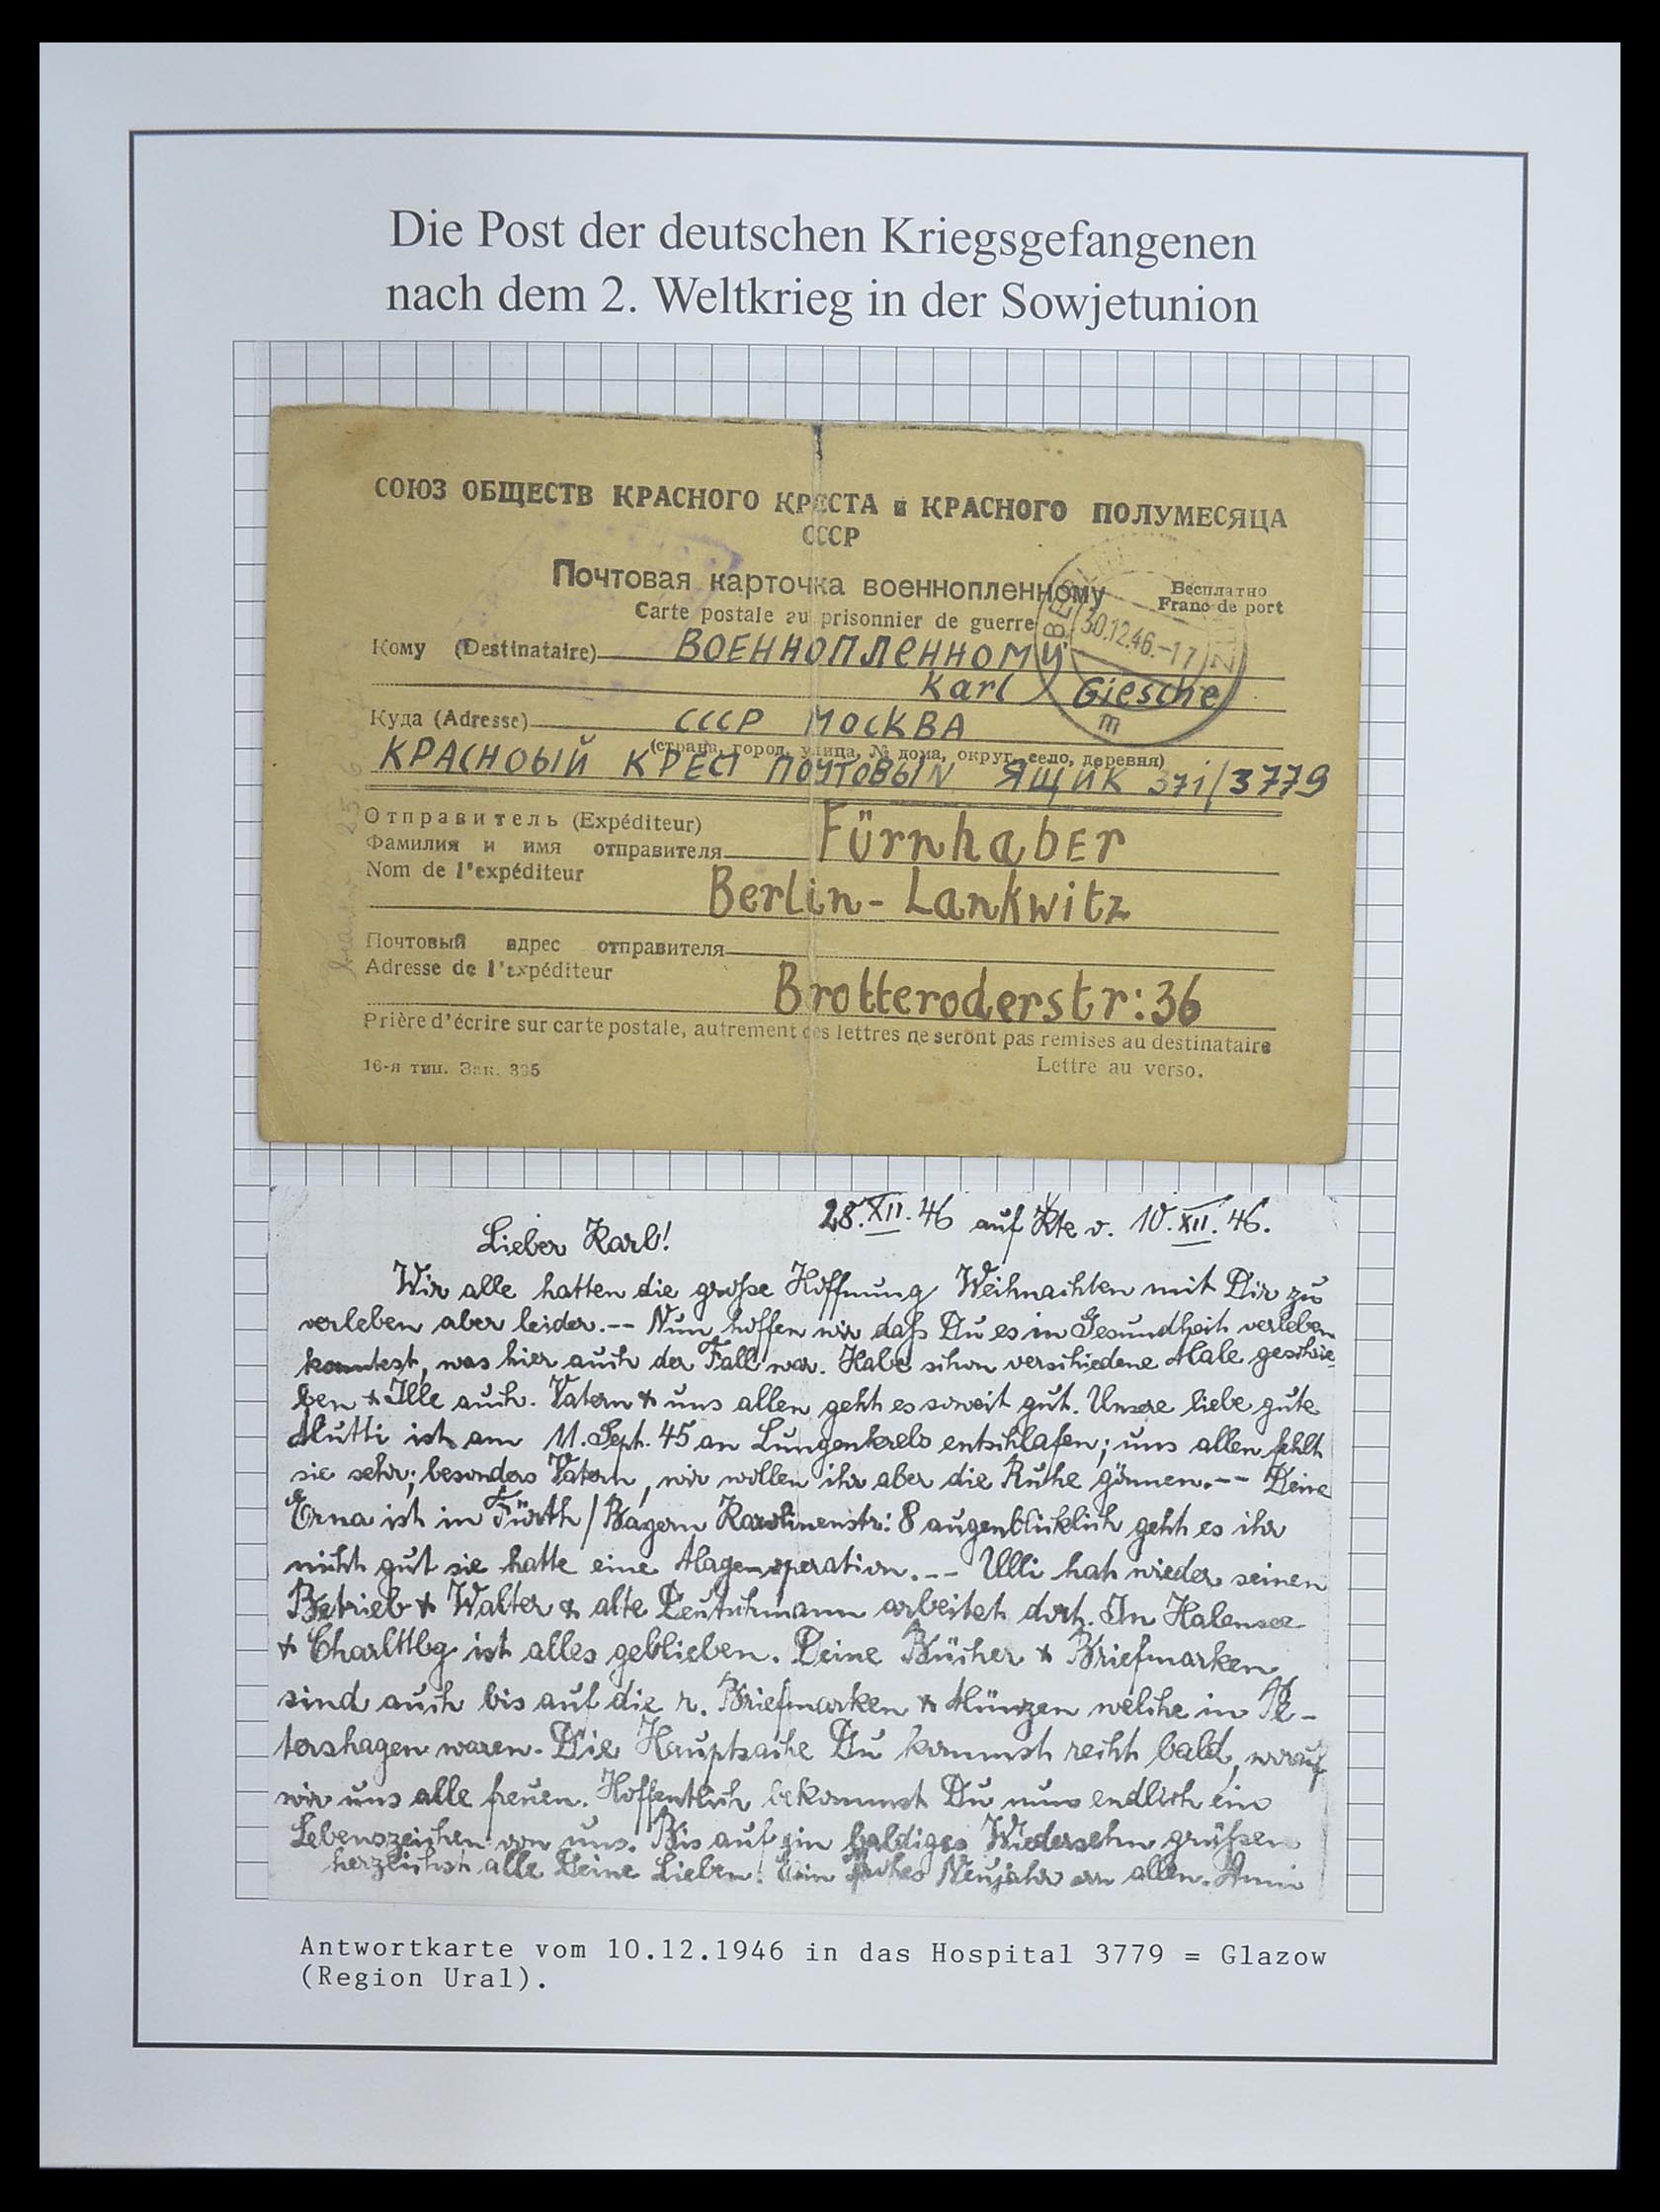 Die Post der deutschen Kriegsgefangenen
nach dem 2. Weltkrieg in der Sowjetunion
СОЮЗ ОБЩЕСТВ КРАСНОГО КРЕСТА и КРАСНОГО ПОЛУМЕСЯЦА
СССР
Почтовая карточка военнопленному
Бесплатно
Carte postale au prisonnier de guerre
Franc de port
30.12.46.-17
Кому (Destinataire) ВОЕННОПЛЕННОМУ
Karl Giesche
m
Куда (Adresse) СССР МОСКВА
(страна, город, улица, № дома, округ, село, деревня)
КРАСНОЫЙ КРЕСТ ПОЧТОВЫN ЯЩИК 371/3779
Отправитель (Expéditeur)
Фамилия и имя отправителя Fürnhaber
Nom de l'expéditeur
Berlin-Lankwitz
Почтовый адрес отправителя
Adresse de l'expéditeur
Brotteroderstr: 36
Prière d'écrire sur carte postale, autrement ces lettres ne seront pas remises au destinataire
16-я тип. Зак. 395
Lettre au verso.
28. XII. 46 auf Kte v. 10. XII. 46.
Lieber Karl!
Wir alle hatten die große Hoffnung Weihnachten mit Dir zu
verleben aber leider. -- Nun hoffen wir daß Du es in Gesundheit verleben
konntest, was hier auch der Fall war. Habe schon verschiedene Male geschrie-
ben & Ille auch. Vatern & uns allen geht es soweit gut. Unsere liebe gute
Mutti ist am 11. Sept. 45 an Lungenkrebs entschlafen; uns allen fehlt
sie sehr; besonders Vatern, wir wollen ihr aber die Ruhe gönnen. -- Deine
Erna ist in Fürth / Bayern Karolinenstr: 8 augenblicklich geht es ihr
nicht gut sie hatte eine Magenoperation. -- Ulli hat wieder seinen
Betrieb & Walter & alte Deutschmann arbeitet dort. In Halensee
& Charlttbg ist alles geblieben. Deine Bücher & Briefmarken
sind auch bis auf die r. Briefmarken & Münzen welche in Pe-
tershagen waren. Die Hauptsache Du kommst recht bald, worauf
wir uns alle freuen. Hoffentlich bekommst Du nun endlich ein
Lebenszeichen von uns. Bis auf ein baldiges Wiedersehn grüßen
herzlichst alle Deine Lieben. Ein frohes Neujahr von allen.
Antwortkarte vom 10.12.1946 in das Hospital 3779 = Glazow
(Region Ural).